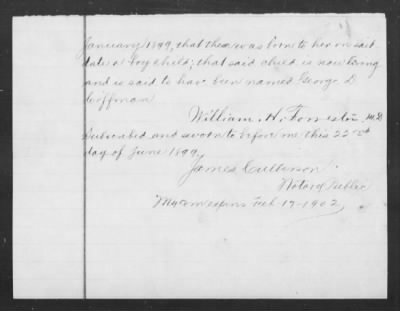 January 1899, that there was born to her on said
date a boy child; that said child is now living
and is said to have been named George D
Coffman
William H. Forrester M.D
Subscribed and sworn to before me this 22nd
day of June 1899.
James Culberson
Notary Public
My Com expires Feb 17-1902